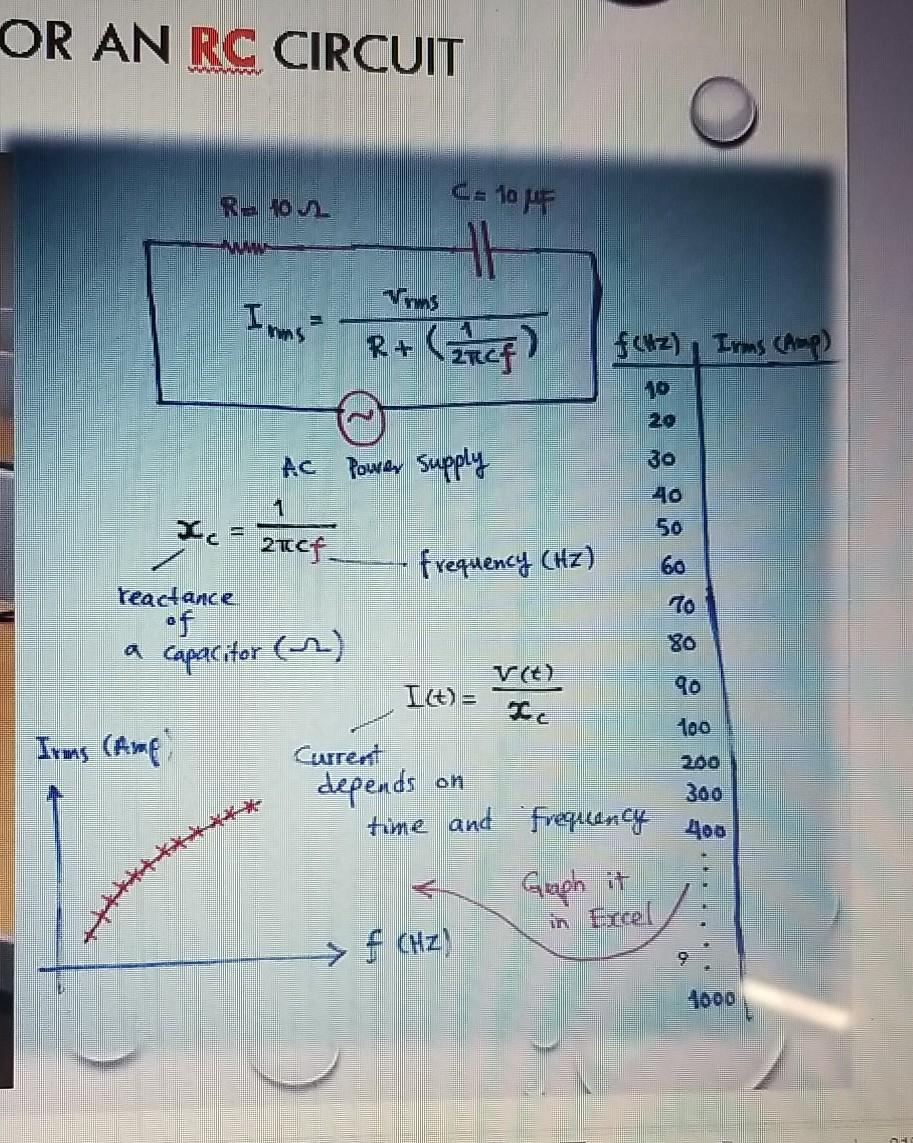 OR AN RC CIRCUIT
R= 10 Ω
C= 10 μF
Irms = Vrms / R + (1 / 2πCf)
AC Power Supply
xc = 1 / 2πCf
frequency (HZ)
reactance
of
a capacitor (Ω)
I(t) = V(t) / xc
Current
depends on
time and frequency
Irms (Amp)
f (HZ)
Graph it
in Excel
f(HZ) Irms (Amp)
10
20
30
40
50
60
70
80
90
100
200
300
400
9
1000